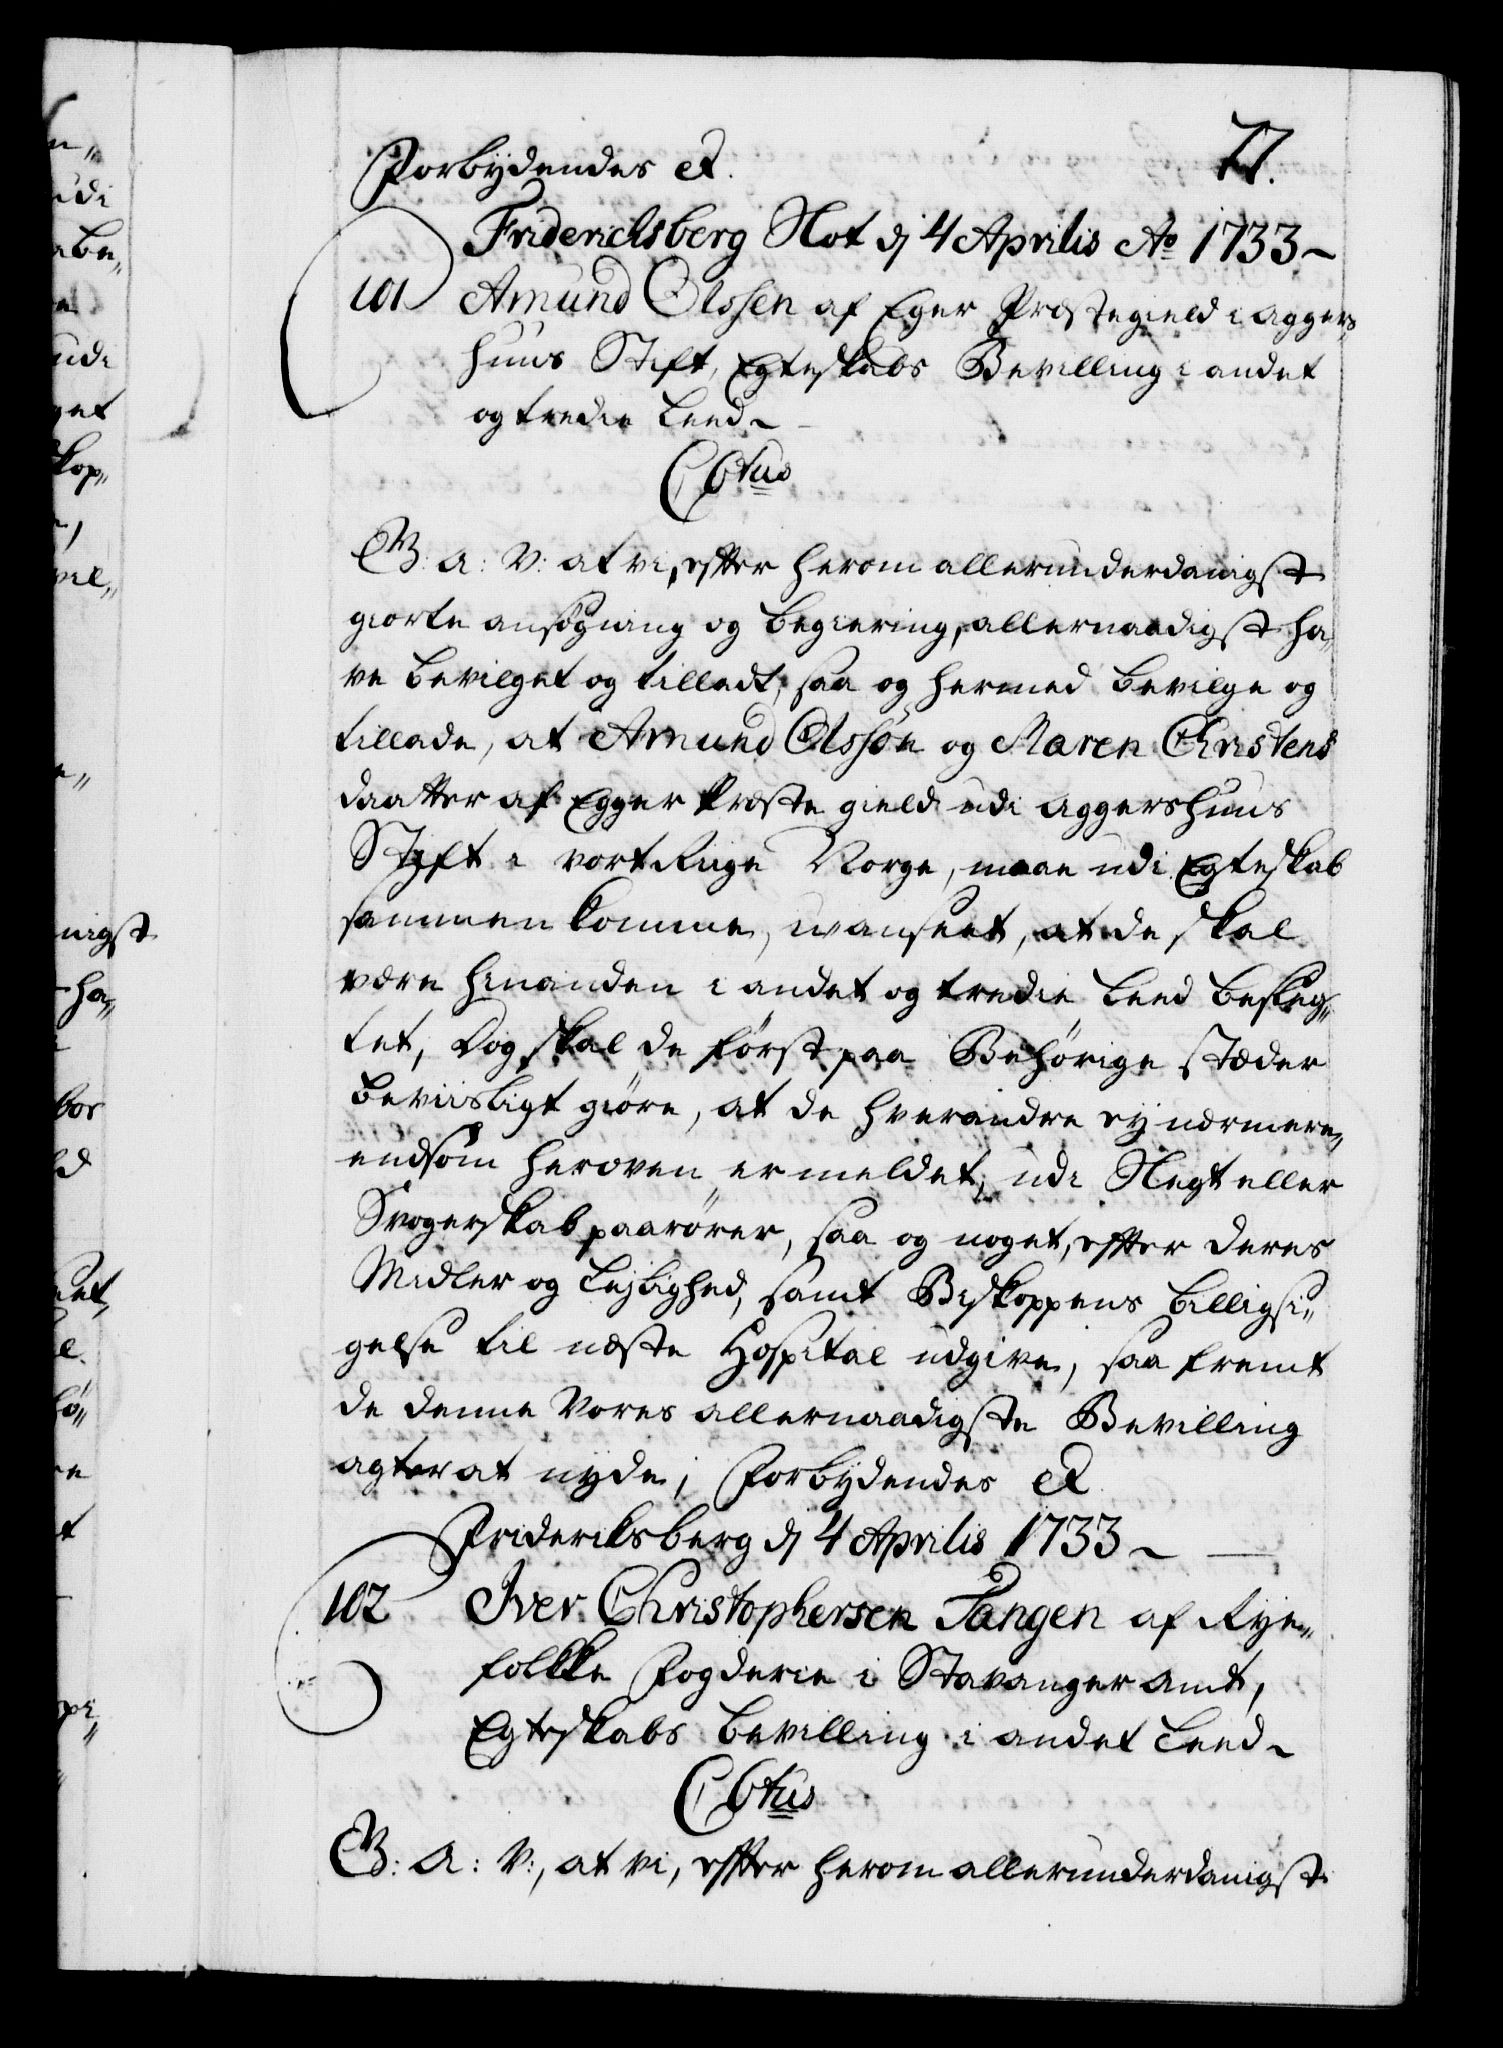 77.
Forbydendes etc.
Friderichsberg Slot dj 4 Aprilis Ao 1733~
101 Amund Olssen af Eger Præstegield i Aggers
huus Stift, Egteskabs Bevilling i andet
og tredie Leed~
C 6tus
G: A: V: at vi, efter herom allerunderdanigst
giorte ansøgning og begiering, allernaadigst ha„
ve bevilget og tilladt, saa og hermed bevilge og
tillade, at Amund Olssøn og Maren Christens
daatter af Egger Præste gield udi Aggershuus
Stift i vort Rige Norge, maae udi Egteskab
sammen komme, uanseet, at de skal
være hinanden i andet og tredie Leed beslæg„
tet, Dog skal de først paa Behørige stæder
beviisligt giøre, at de hverandre ej nærmere,
endsom heroven er meldet, udi Slegt eller
Svogerskab paarører, saa og noget, efter deres
Midler og Lejlighed, samt Biskoppens billigsi„
gelse til næste Hospital udgive, saa fremt
de denne Vores allernaadigste Bevilling
agter at nyde; Forbydendes etc.
Frideriksberg dj 4 Aprilis 1733~
102 Iver Christophersen Tangen af Rye„
folkke Fogderie i Stavanger Amt,
Egteskabs bevilling i andet Leed~
C 6tus
G: A: V:, at vi, efter herom allerunderdanigst